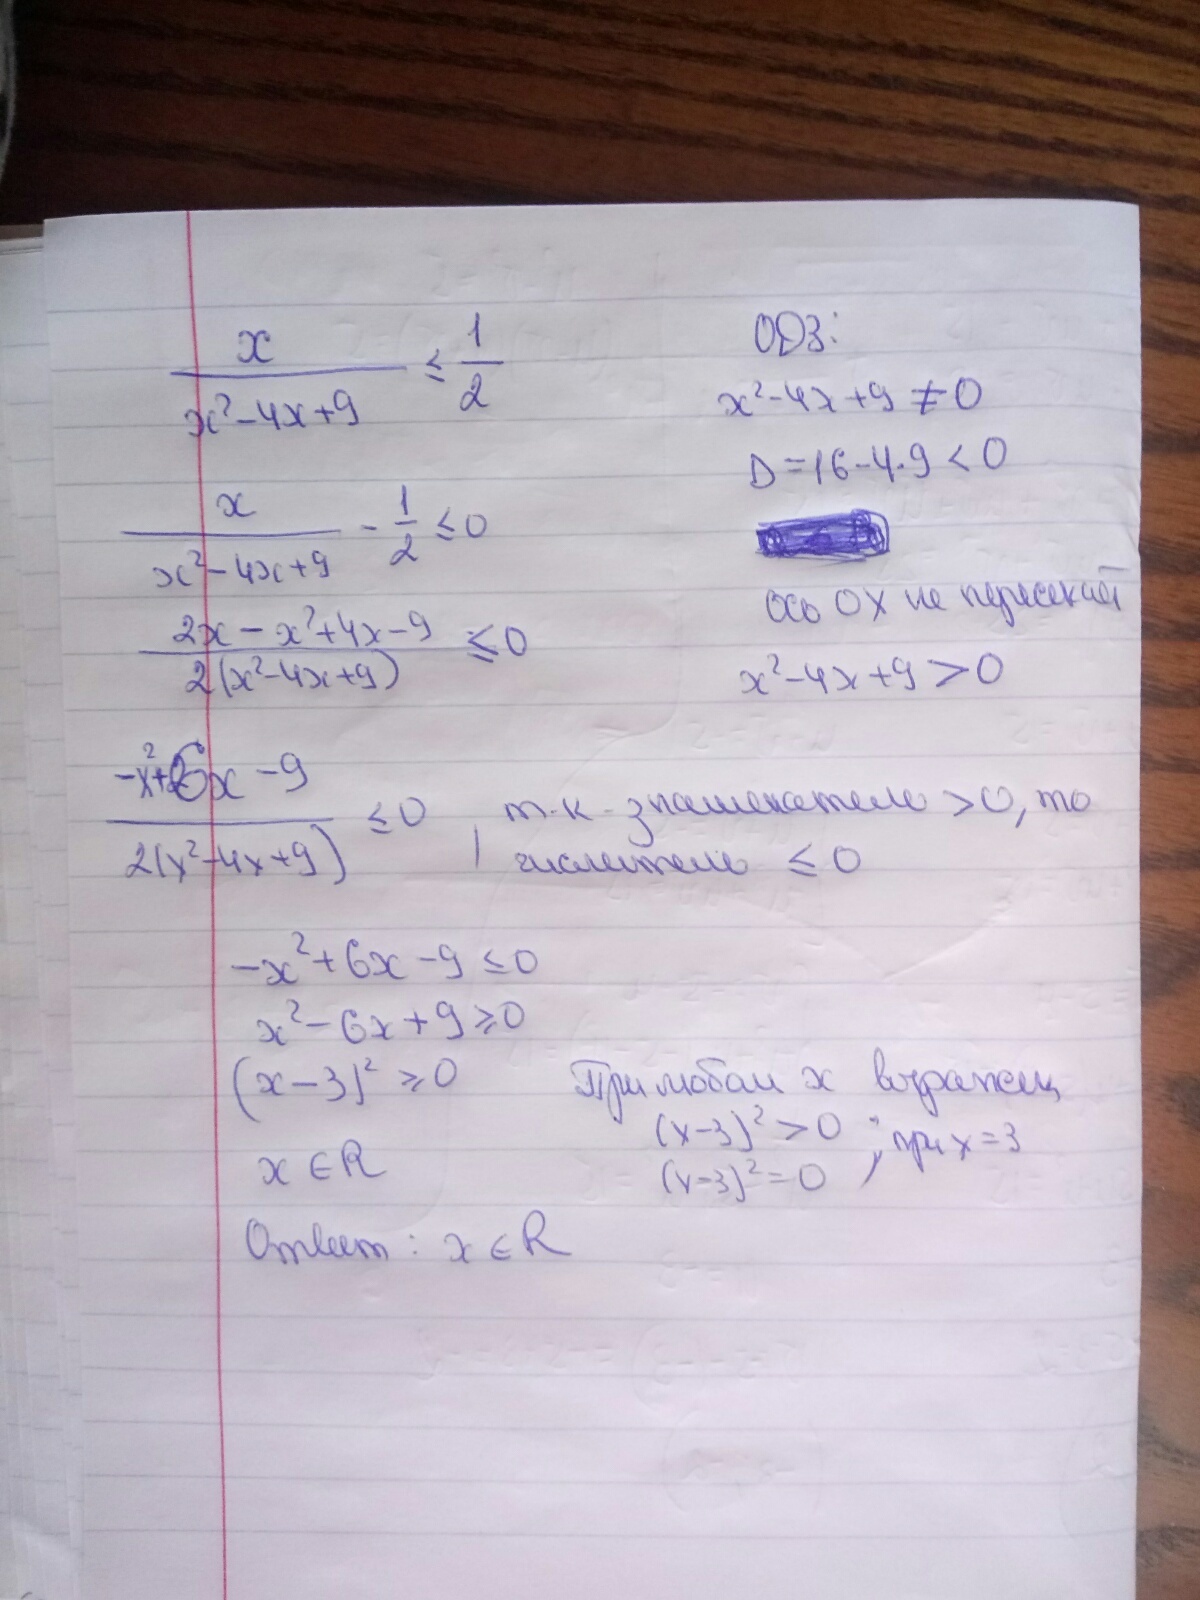 x / (x² - 4x + 9) ≤ 1/2
ОДЗ:
x² - 4x + 9 ≠ 0
D = 16 - 4·9 < 0
ось OX не пересекает
x² - 4x + 9 > 0
x / (x² - 4x + 9) - 1/2 ≤ 0
(2x - x² + 4x - 9) / (2(x² - 4x + 9)) ≤ 0
(-x² + 6x - 9) / (2(x² - 4x + 9)) ≤ 0, т.к. знаменатель > 0, то
числитель ≤ 0
-x² + 6x - 9 ≤ 0
x² - 6x + 9 ≥ 0
(x - 3)² ≥ 0
x ∈ R
При любом x
(x-3)² > 0; при x = 3
(x-3)² = 0
Ответ: x ∈ R